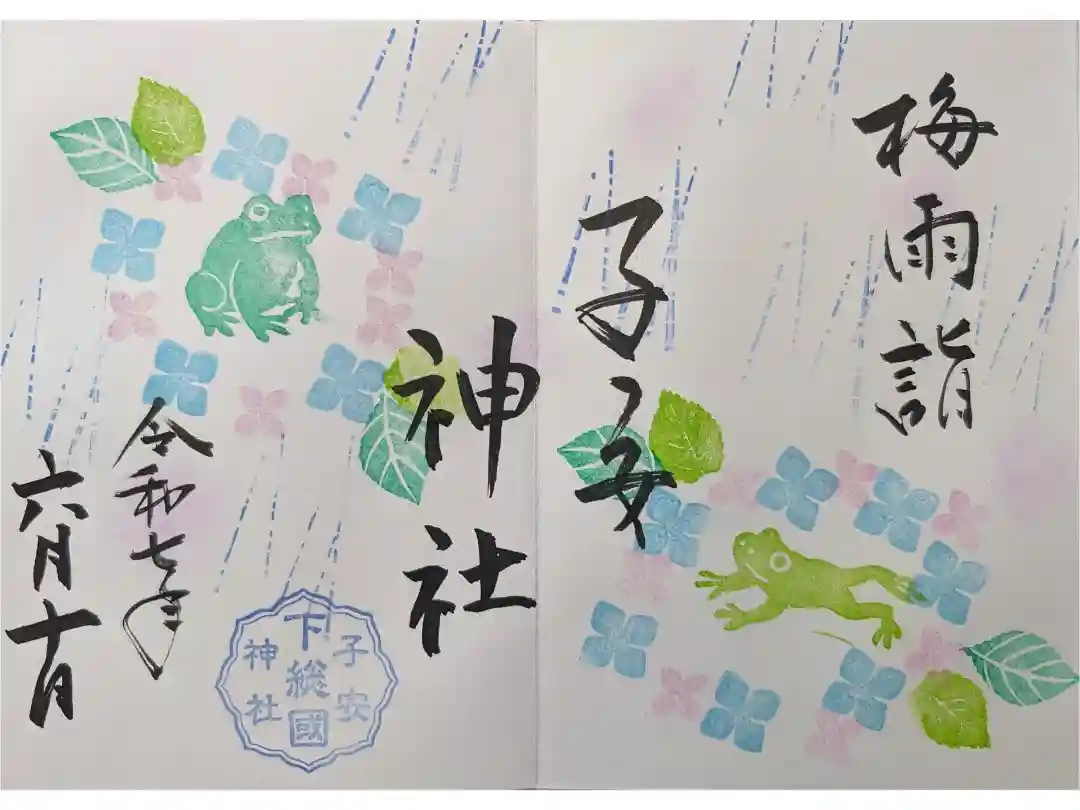 梅雨詣
子安
神社
令和七年
六月十日
子安
下総國
神社